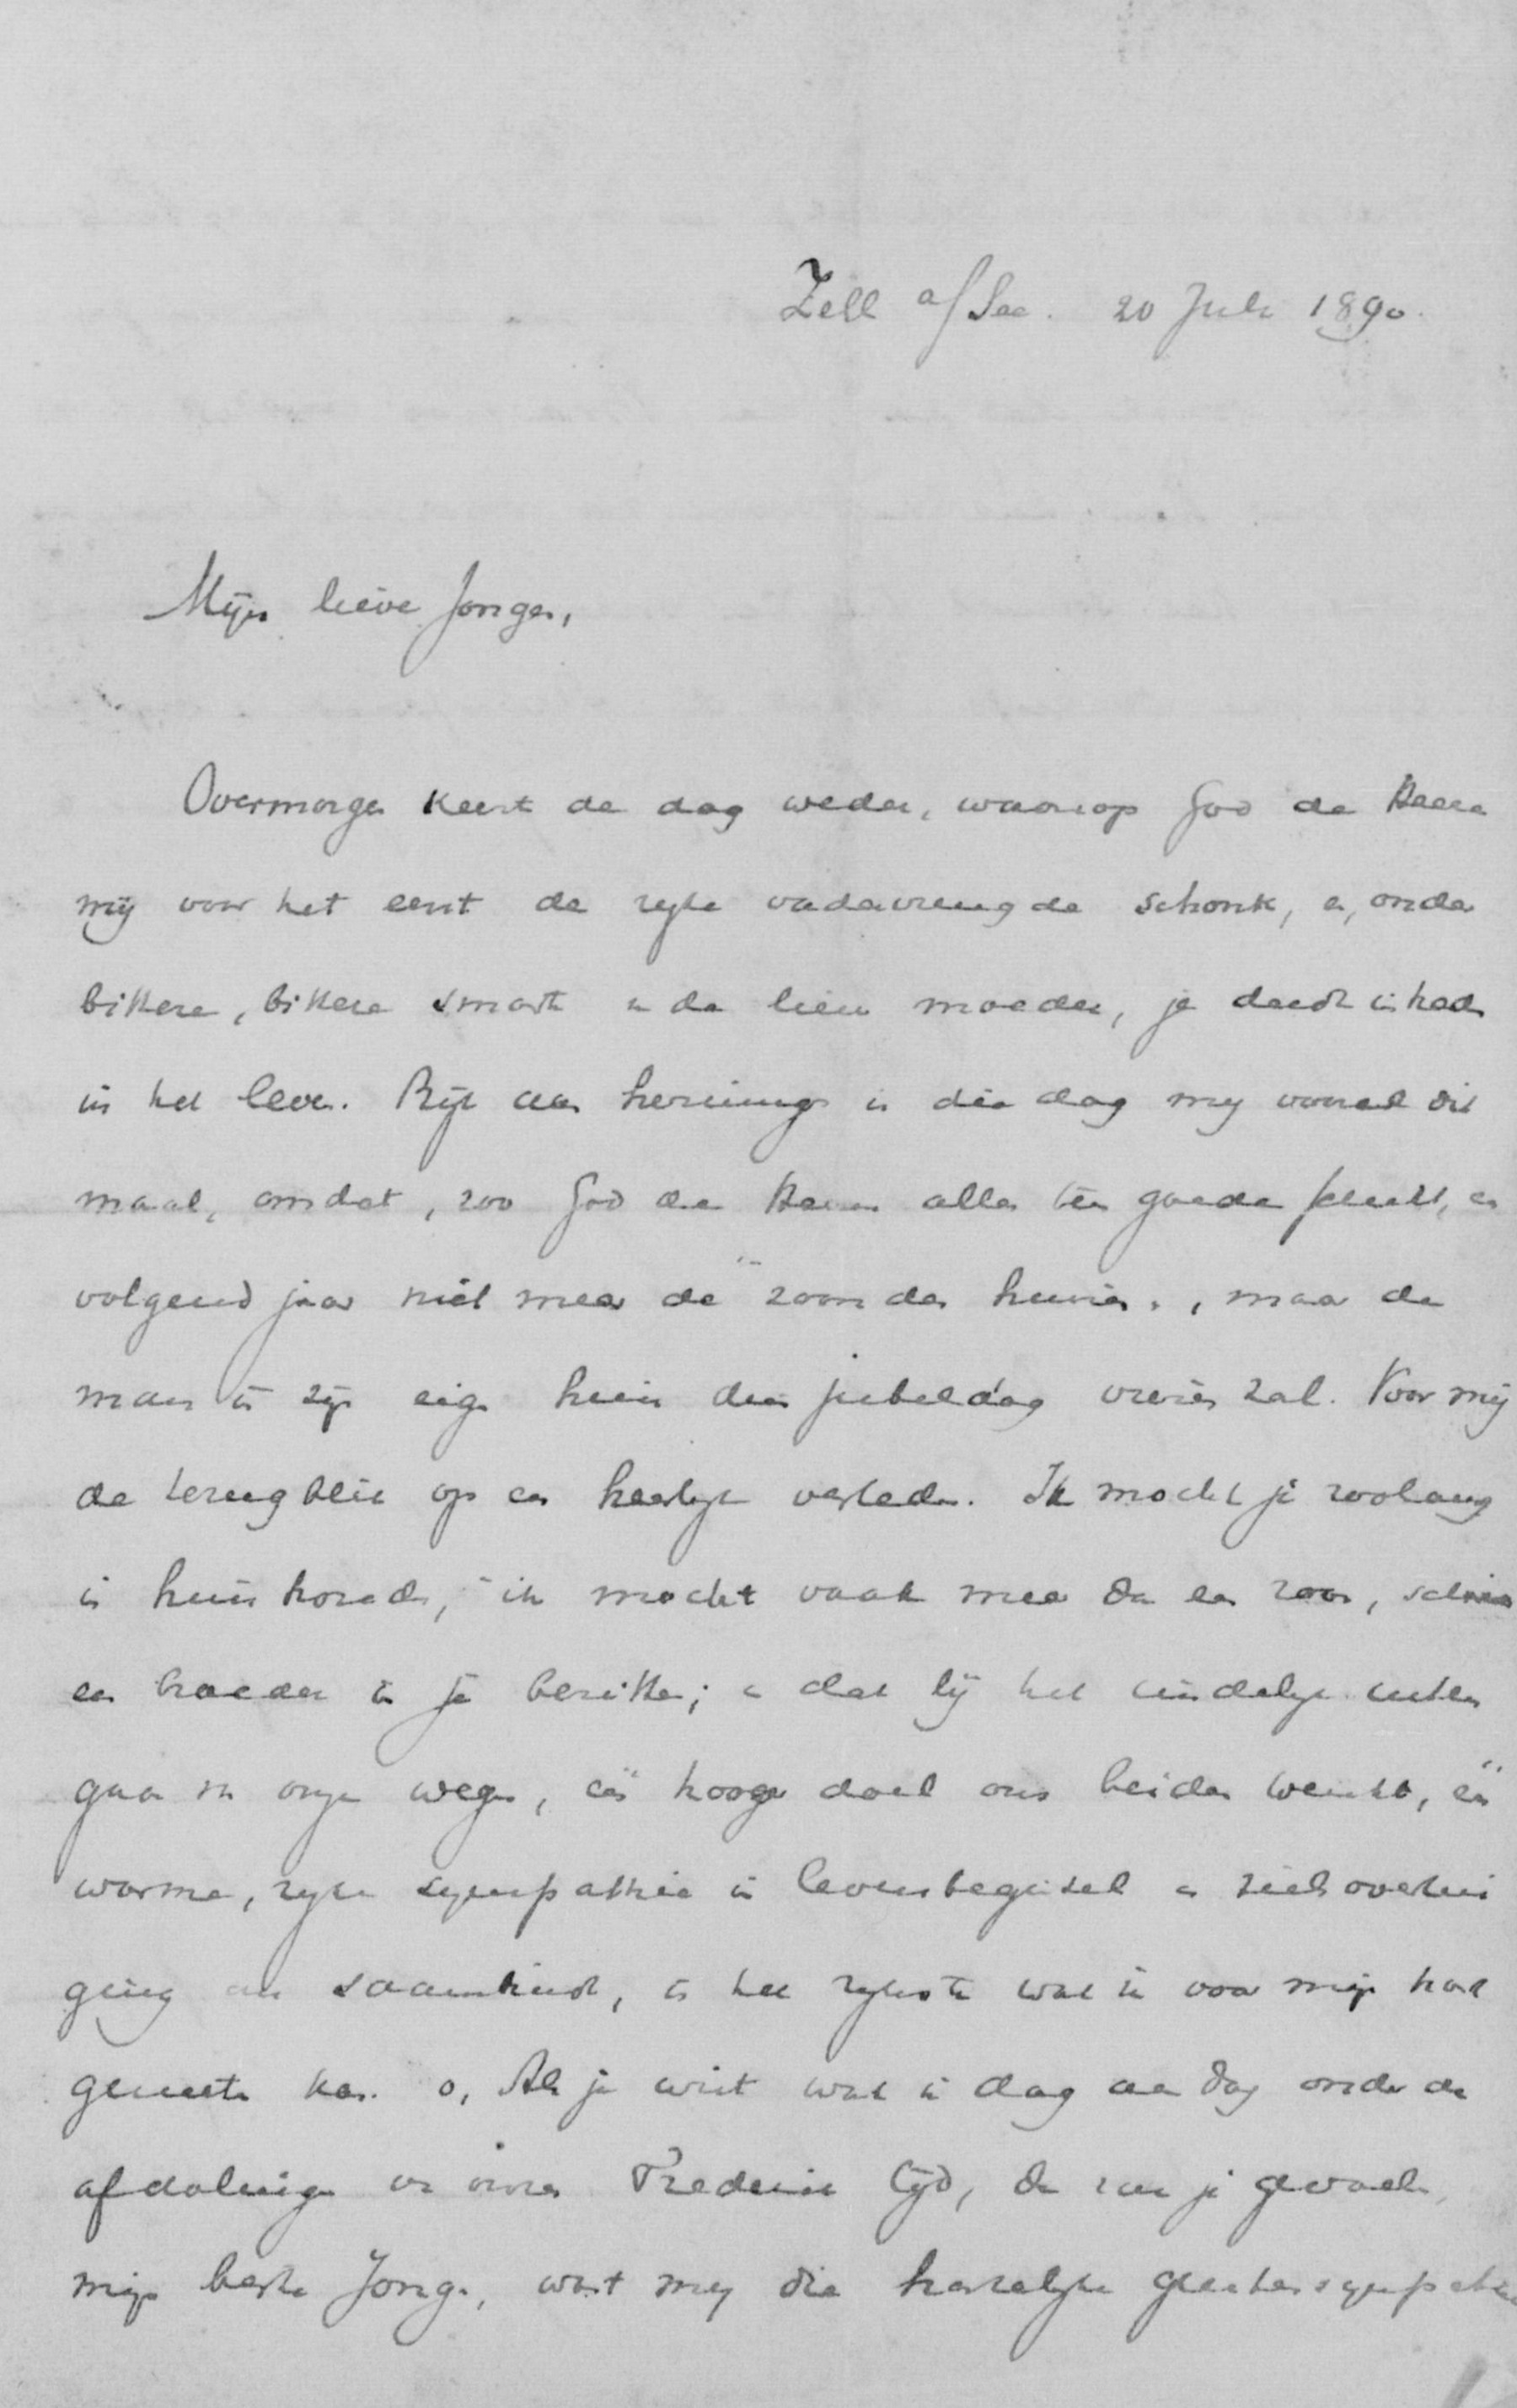 Zell a/See. 20 Juli 1890.
Mijn lieve Jongen,
Overmorgen keert de dag weder, waarop God de Heere
mij voor het eerst de rijke vadervreugde schonk, en, onder
bittere, bittere smart v. de lieve moeder, je deedt intreden
in het leven. Rijk aan herinnering is die dag mij vooral dit
maal, omdat, zoo God de Heere alles ten goede schikt, en
volgend jaar niet meer de zoon des huizes, maar de
man in zijn eigen huis dien jubeldag vieren zal. Voor mij
de terugblik op een heerlijk verleden. Ik mocht je zoolang
in huis houden, ik mocht vaak meer dan een zoon, schier
een broeder in je bezitten; en dat bij het eindelijk uiteen
gaan van onze wegen, één hooger doel ons beiden wenkt, één
warme, rijke sympathie in levensbeginsel en zielsovertui
ging ons saambindt, is het rijkste wat ik voor mijn hart
genieten kan. o, Als je wist wat ik dag aan dag onder de
afdolingen van onzen Frederik lijd, dan zou je gevoelen,
mijn beste Jongen, wat mij die hartelijke geestessympathie